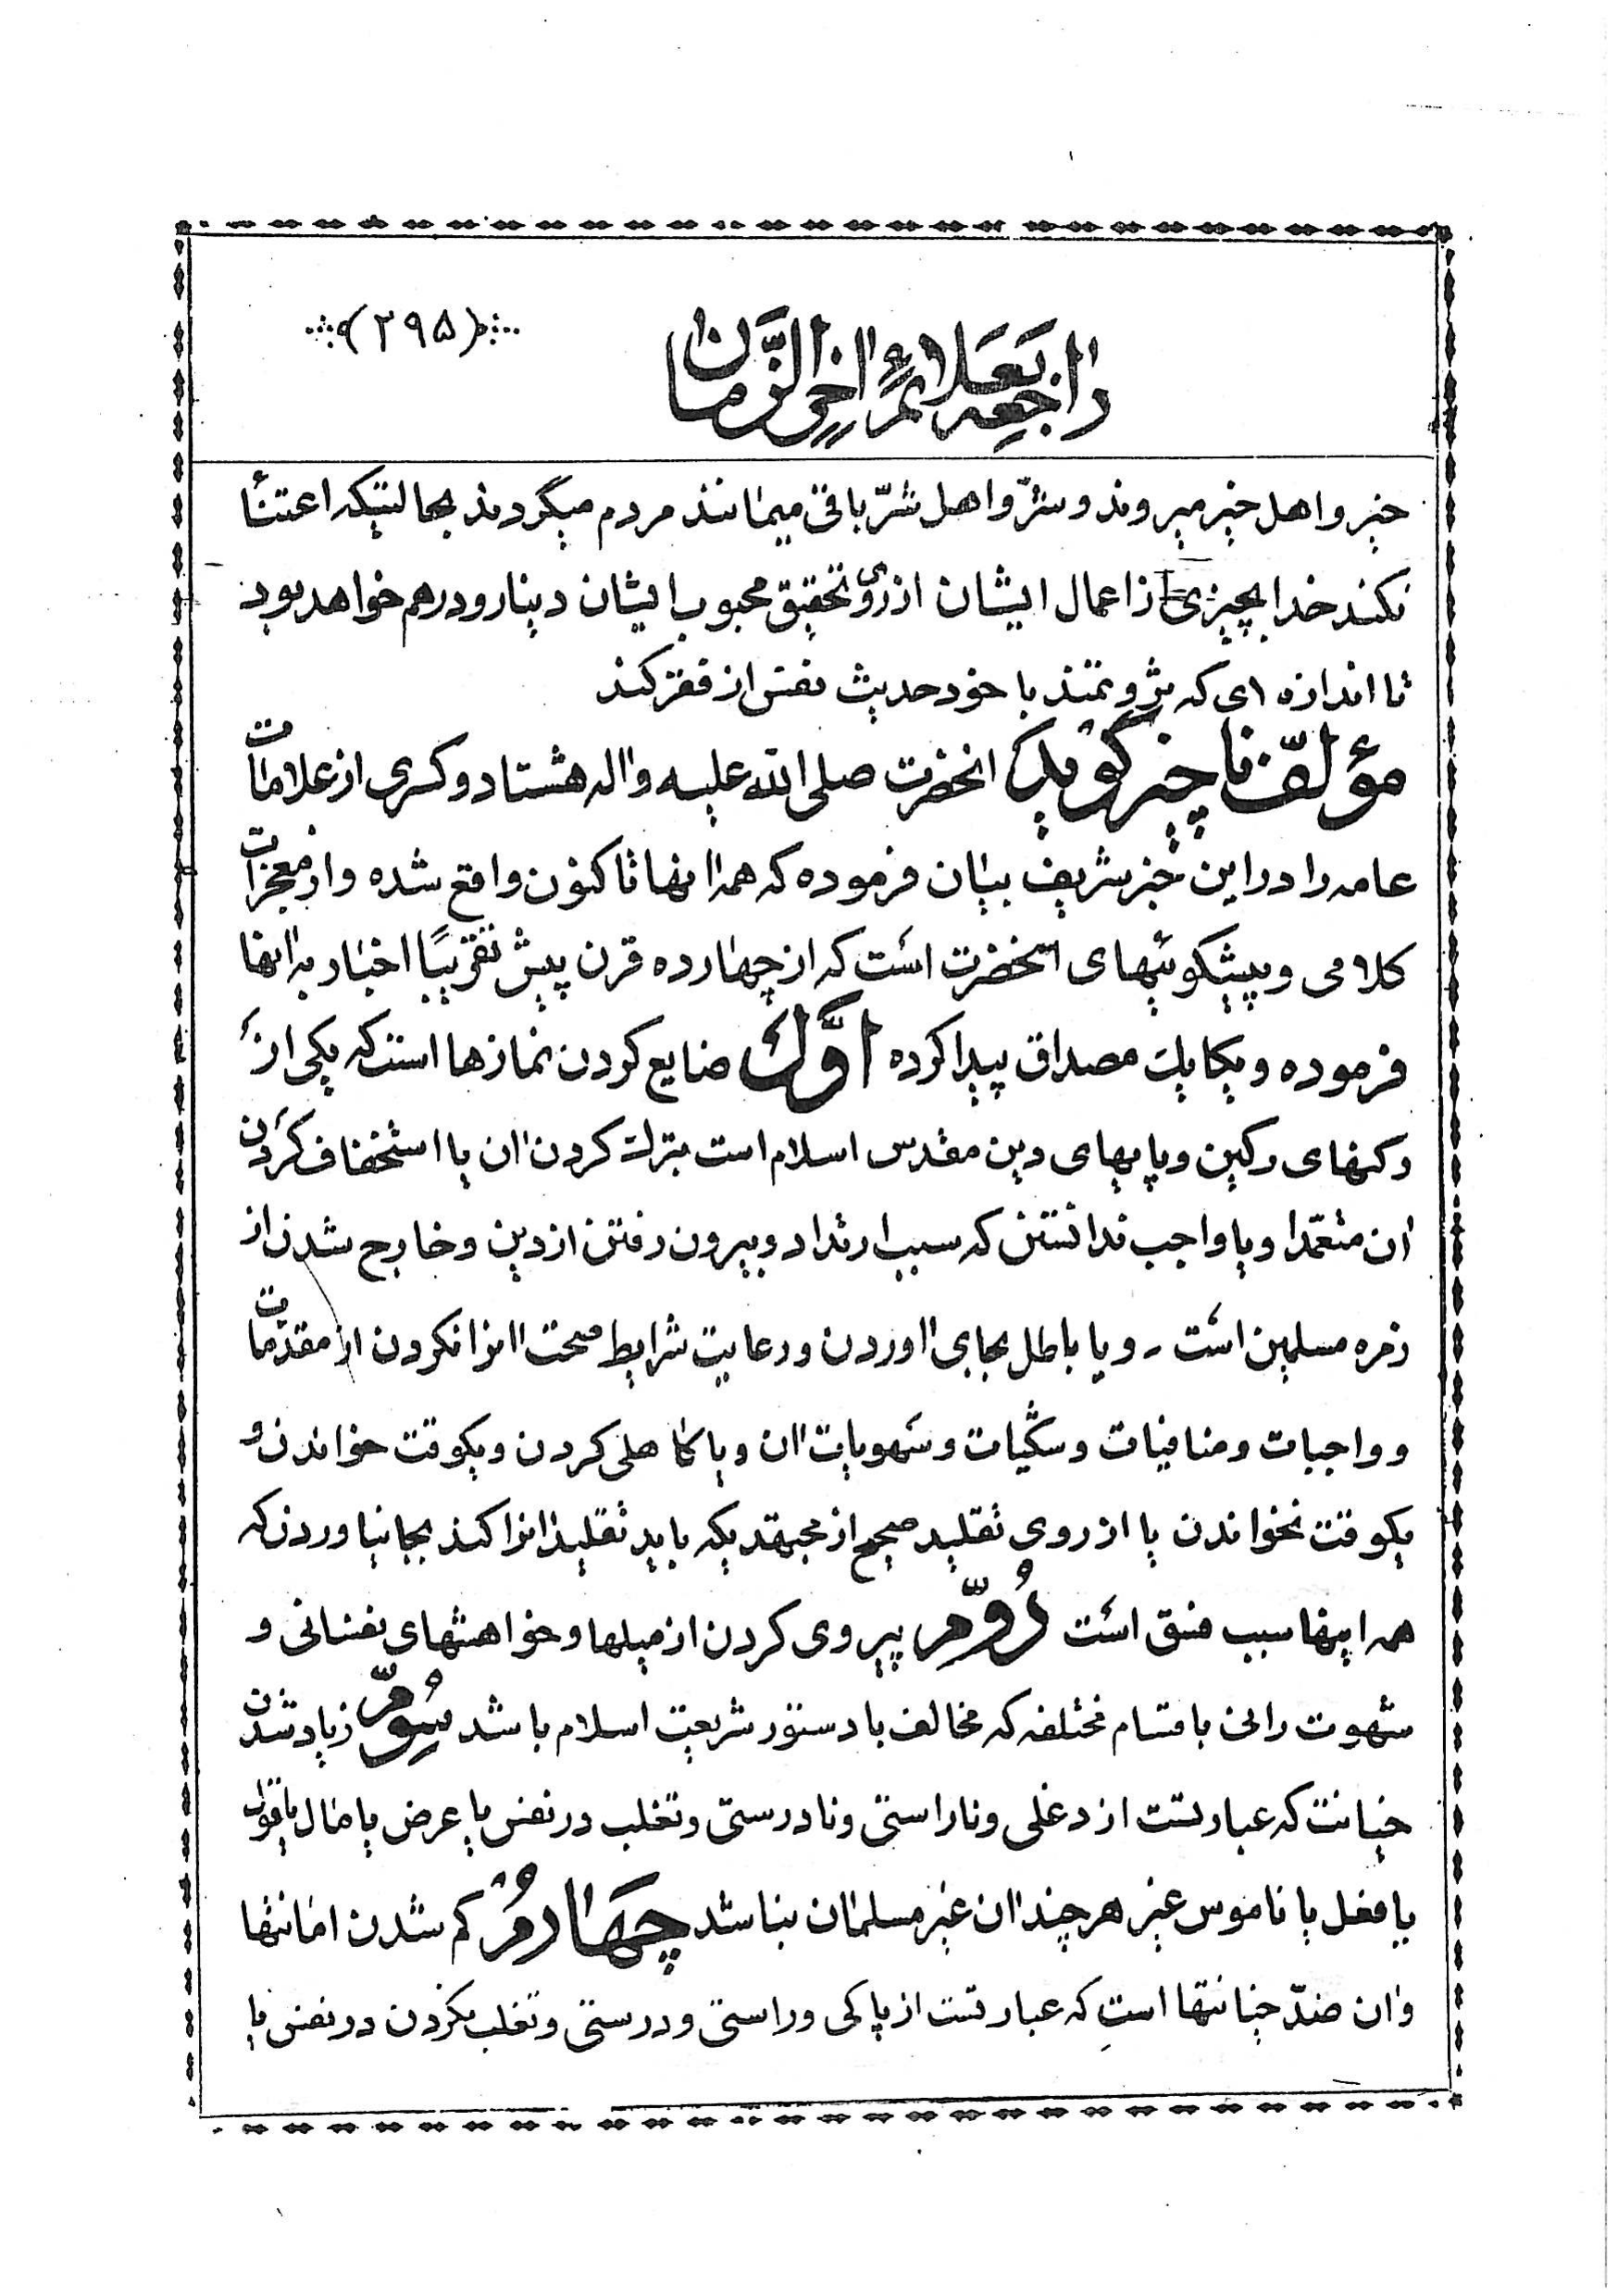 (۲۹۵)
راجعه بعلائم آخر الزمان
خیر و اهل خیر میروند و شرّ و اهل شرّ باقی میمانند مردم میگردند بحالتیکه اعتنا
نکند خدا بچیزی از اعمال ایشان از روی تحقیق محبوب ایشان دینار و درهم خواهد بود
تا اندازه ای که ثروتمند با خود حدیث نفس از فقر کند
مؤلّف ناچیز گوید انحضرت صلی الله علیه و اله هشتاد و کسری از علامات
عامه را در این خبر شریف بیان فرموده که همه انها تا کنون واقع شده و از معجزات
کلامی و پیشگوئیهای انحضرت است که از چهارده قرن پیش تقریبًا اخبار به انها
فرموده و یکایک مصداق پیدا کرده اوّل ضایع کردن نمازها است که یکی از
رکنهای رکین و پایهای دین مقدس اسلام است بترک کردن ان یا استخفاف کردن
ان متعمّدا و یا واجب ندانستن که سبب ارتداد و بیرون رفتن از دین و خارج شدن از
زمره مسلمین است - و یا باطل بجای اوردن و رعایت شرایط صحت انرا نکردن از مقدّمات
و واجبات و منافیات و شکّیات و سهویات ان و یا کاهلی کردن و یکوقت خواندن و
یکوقت نخواندن یا از روی تقلید صحیح از مجتهدیکه باید تقلید انرا کند بجا نیاوردن که
همه اینها سبب فسق است دوّم پیروی کردن از میلها و خواهشهای نفسانی و
شهوت رانی باقسام مختلفه که مخالف با دستور شریعت اسلام باشد سوّم زیاد شدن
خیانت که عبارتست از دغلی و ناراستی و نادرستی و تغلب در نفس یا عرض یا مال یا قول
یا فعل یا ناموس غیر هر چند ان غیر مسلمان نباشد چهارم کم شدن امانتها
و ان ضدّ خیانتها است که عبارتست از پاکی و راستی و درستی و تغلب نکردن در نفس یا